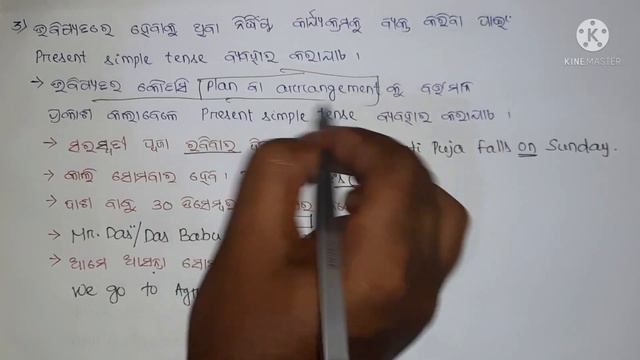 3) ଭବିଷ୍ୟତରେ ହେବାକୁ ଥିବା ନିର୍ଦ୍ଦିଷ୍ଟ କାର୍ଯ୍ୟକ୍ରମକୁ ବ୍ୟକ୍ତ କରିବା ପାଇଁ
Present simple tense ବ୍ୟବହାର କରାଯାଏ ।
→ ଭବିଷ୍ୟତର କୌଣସି Plan ବା arrangement କୁ ବର୍ତ୍ତମାନ
ପ୍ରକାଶ କଲାବେଳେ Present simple tense ବ୍ୟବହାର କରାଯାଏ ।
→ ସରସ୍ୱତୀ ପୂଜା ରବିବାର Puja falls on Sunday.
→ କାଲି ସୋମବାର ହେବ ।
→ ଦାଶ ବାବୁ 30 ଡିସେମ୍ବର
→ Mr. Das/Das Babu
→ ଆମେ ଆସନ୍ତା
We go to
KINEMASTER